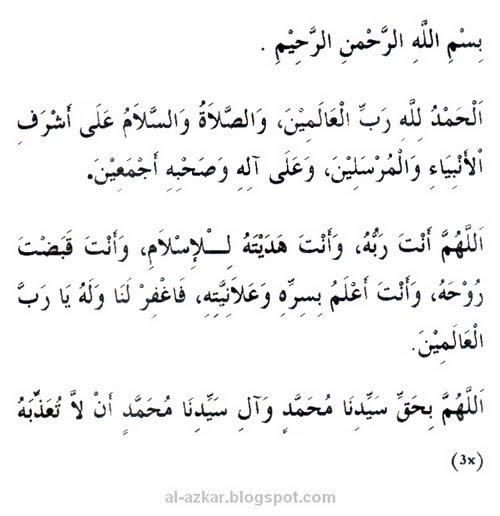 بِسْمِ اللَّهِ الرَّحْمنِ الرَّحِيْمِ .
اَلْحَمْدُ لِلَّهِ رَبِّ الْعَالَمِيْنَ، وَالصَّلَاةُ وَالسَّلَامُ عَلَى أَشْرَفِ
الْأَنْبِيَاءِ وَالْمُرْسَلِيْنَ، وَعَلَى آلِهِ وَصَحْبِهِ أَجْمَعِيْنَ.
اَللَّهُمَّ أَنْتَ رَبُّهُ، وَأَنْتَ هَدَيْتَهُ لِــلْإِسْلَامِ، وَأَنْتَ قَبَضْتَ
رُوْحَهُ، وَأَنْتَ أَعْلَمُ بِسِرِّهِ وَعَلَانِيَّتِهِ، فَاغْفِرْ لَنَا وَلَهُ يَا رَبَّ
الْعَالَمِيْنَ.
اَللَّهُمَّ بِحَقِّ سَيِّدِنَا مُحَمَّدٍ وَآلِ سَيِّدِنَا مُحَمَّدٍ أَنْ لَّا تُعَذِّبَهُ
(3x)
al-azkar.blogspot.com